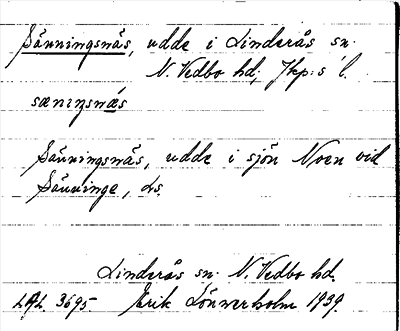 Sänningsnäs, udde i Linderås sn.
N. Vedbo hd; Jkp:s l.
sænıŋsnǽs
Sänningsnäs, udde i sjön Noen vid
Sänninge, ds.
Linderås sn. N. Vedbo hd.
LAL. 3695. Erik Lönnerholm 1939.